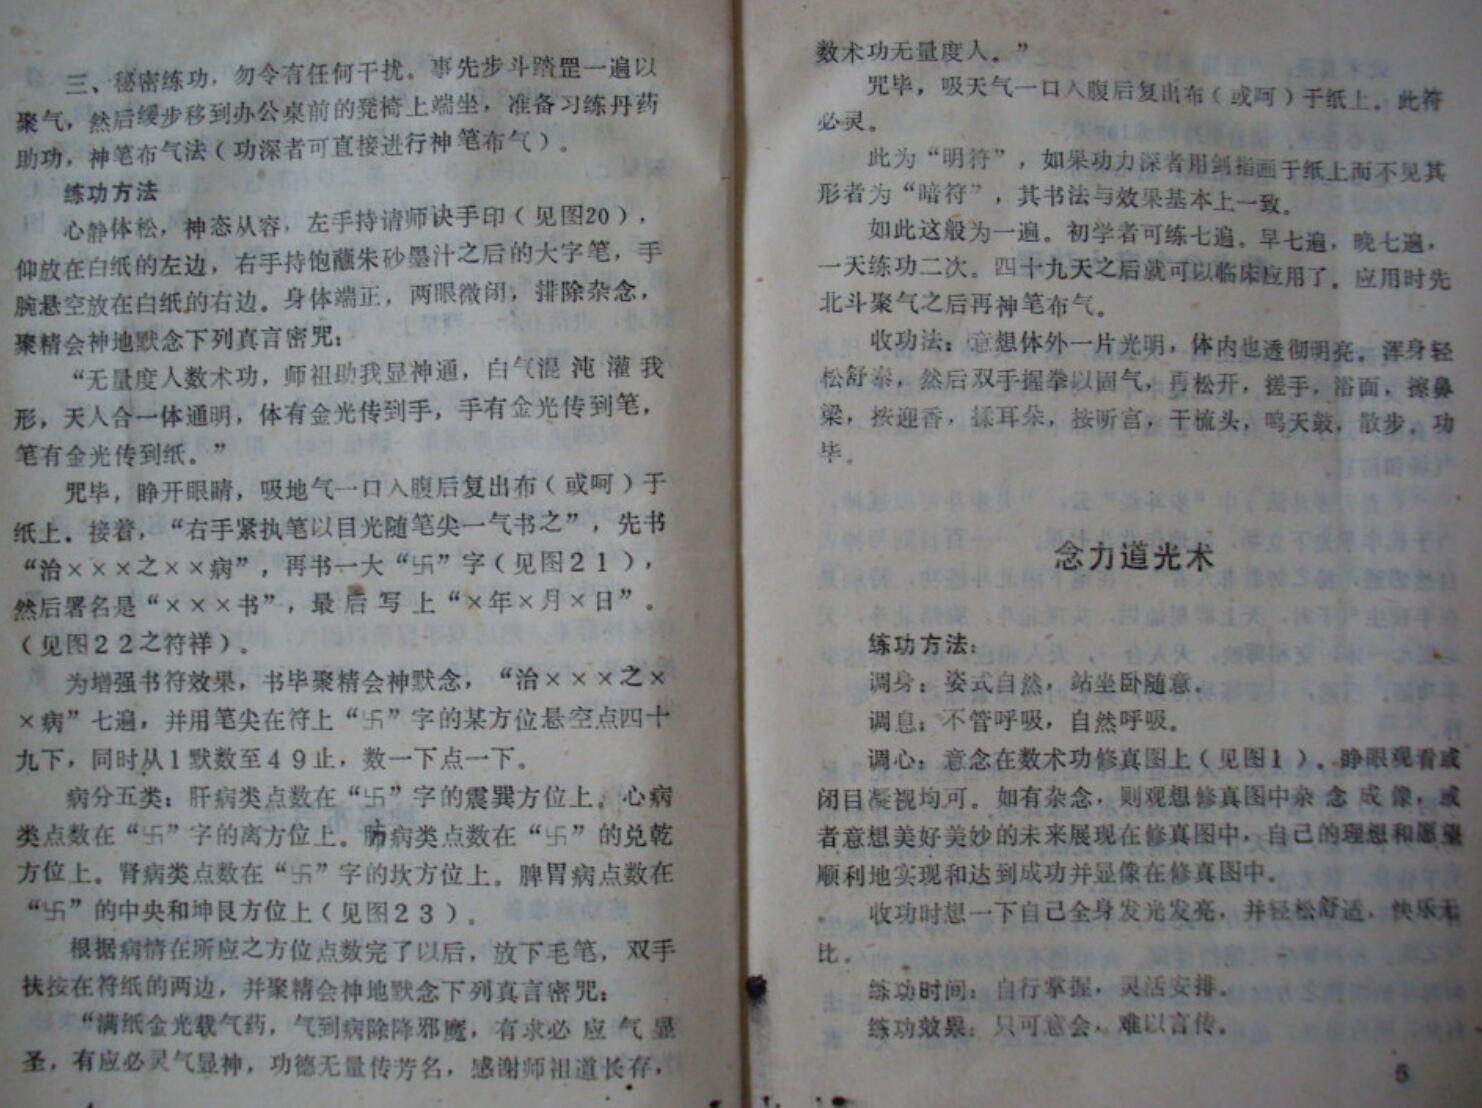 三、秘密练功，勿令有任何干扰。事先步斗踏罡一遍以
聚气，然后缓步移到办公桌前的凳椅上端坐，准备习练丹药
助功，神笔布气法（功深者可直接进行神笔布气）。
练功方法
心静体松，神态从容，左手持请师诀手印（见图20），
仰放在白纸的左边，右手持饱蘸朱砂墨汁之后的大字笔，手
腕悬空放在白纸的右边。身体端正，两眼微闭，排除杂念，
聚精会神地默念下列真言密咒：
“无量度人数术功，师祖助我显神通，白气混沌灌我
形，天人合一体通明，体有金光传到手，手有金光传到笔，
笔有金光传到纸。”
咒毕，睁开眼睛，吸地气一口入腹后复出布（或呵）于
纸上。接着，“右手紧执笔以目光随笔尖一气书之”，先书
“治×××之××病”，再书一大“卐”字（见图21），
然后署名是“×××书”，最后写上“×年×月×日”。
（见图22之符祥）。
为增强书符效果，书毕聚精会神默念，“治×××之×
×病”七遍，并用笔尖在符上“卐”字的某方位悬空点四十
九下，同时从1默数至49止，数一下点一下。
病分五类：肝病类点数在“卐”字的震巽方位上。心病
类点数在“卐”字的离方位上。肺病类点数在“卐”的兑乾
方位上。肾病类点数在“卐”字的坎方位上。脾胃病点数在
“卐”的中央和坤艮方位上（见图23）。
根据病情在所应之方位点数完了以后，放下毛笔，双手
扶按在符纸的两边，并聚精会神地默念下列真言密咒：
“满纸金光载气药，气到病除降邪魔，有求必应气显
圣，有应必灵气显神，功德无量传芳名，感谢师祖道长存，
数术功无量度人。”
咒毕，吸天气一口入腹后复出布（或呵）于纸上。此符
必灵。
此为“明符”，如果功力深者用剑指画于纸上而不见其
形者为“暗符”，其书法与效果基本上一致。
如此这般为一遍。初学者可练七遍。早七遍，晚七遍，
一天练功二次。四十九天之后就可以临床应用了。应用时先
北斗聚气之后再神笔布气。
收功法：意想体外一片光明，体内也透彻明亮。浑身轻
松舒泰，然后双手握拳以固气，再松开，搓手，浴面，擦鼻
梁，按迎香，揉耳朵，按听宫，干梳头，鸣天鼓，散步。功
毕。
念力道光术
练功方法：
调身：姿式自然，站坐卧随意。
调息：不管呼吸，自然呼吸。
调心：意念在数术功修真图上（见图1）。睁眼观看或
闭目凝视均可。如有杂念，则观想修真图中杂念成像，或
者意想美好美妙的未来展现在修真图中，自己的理想和愿望
顺利地实现和达到成功并显像在修真图中。
收功时想一下自己全身发光发亮，并轻松舒适，快乐无
比。
练功时间：自行掌握，灵活安排。
练功效果：只可意会，难以言传。
5